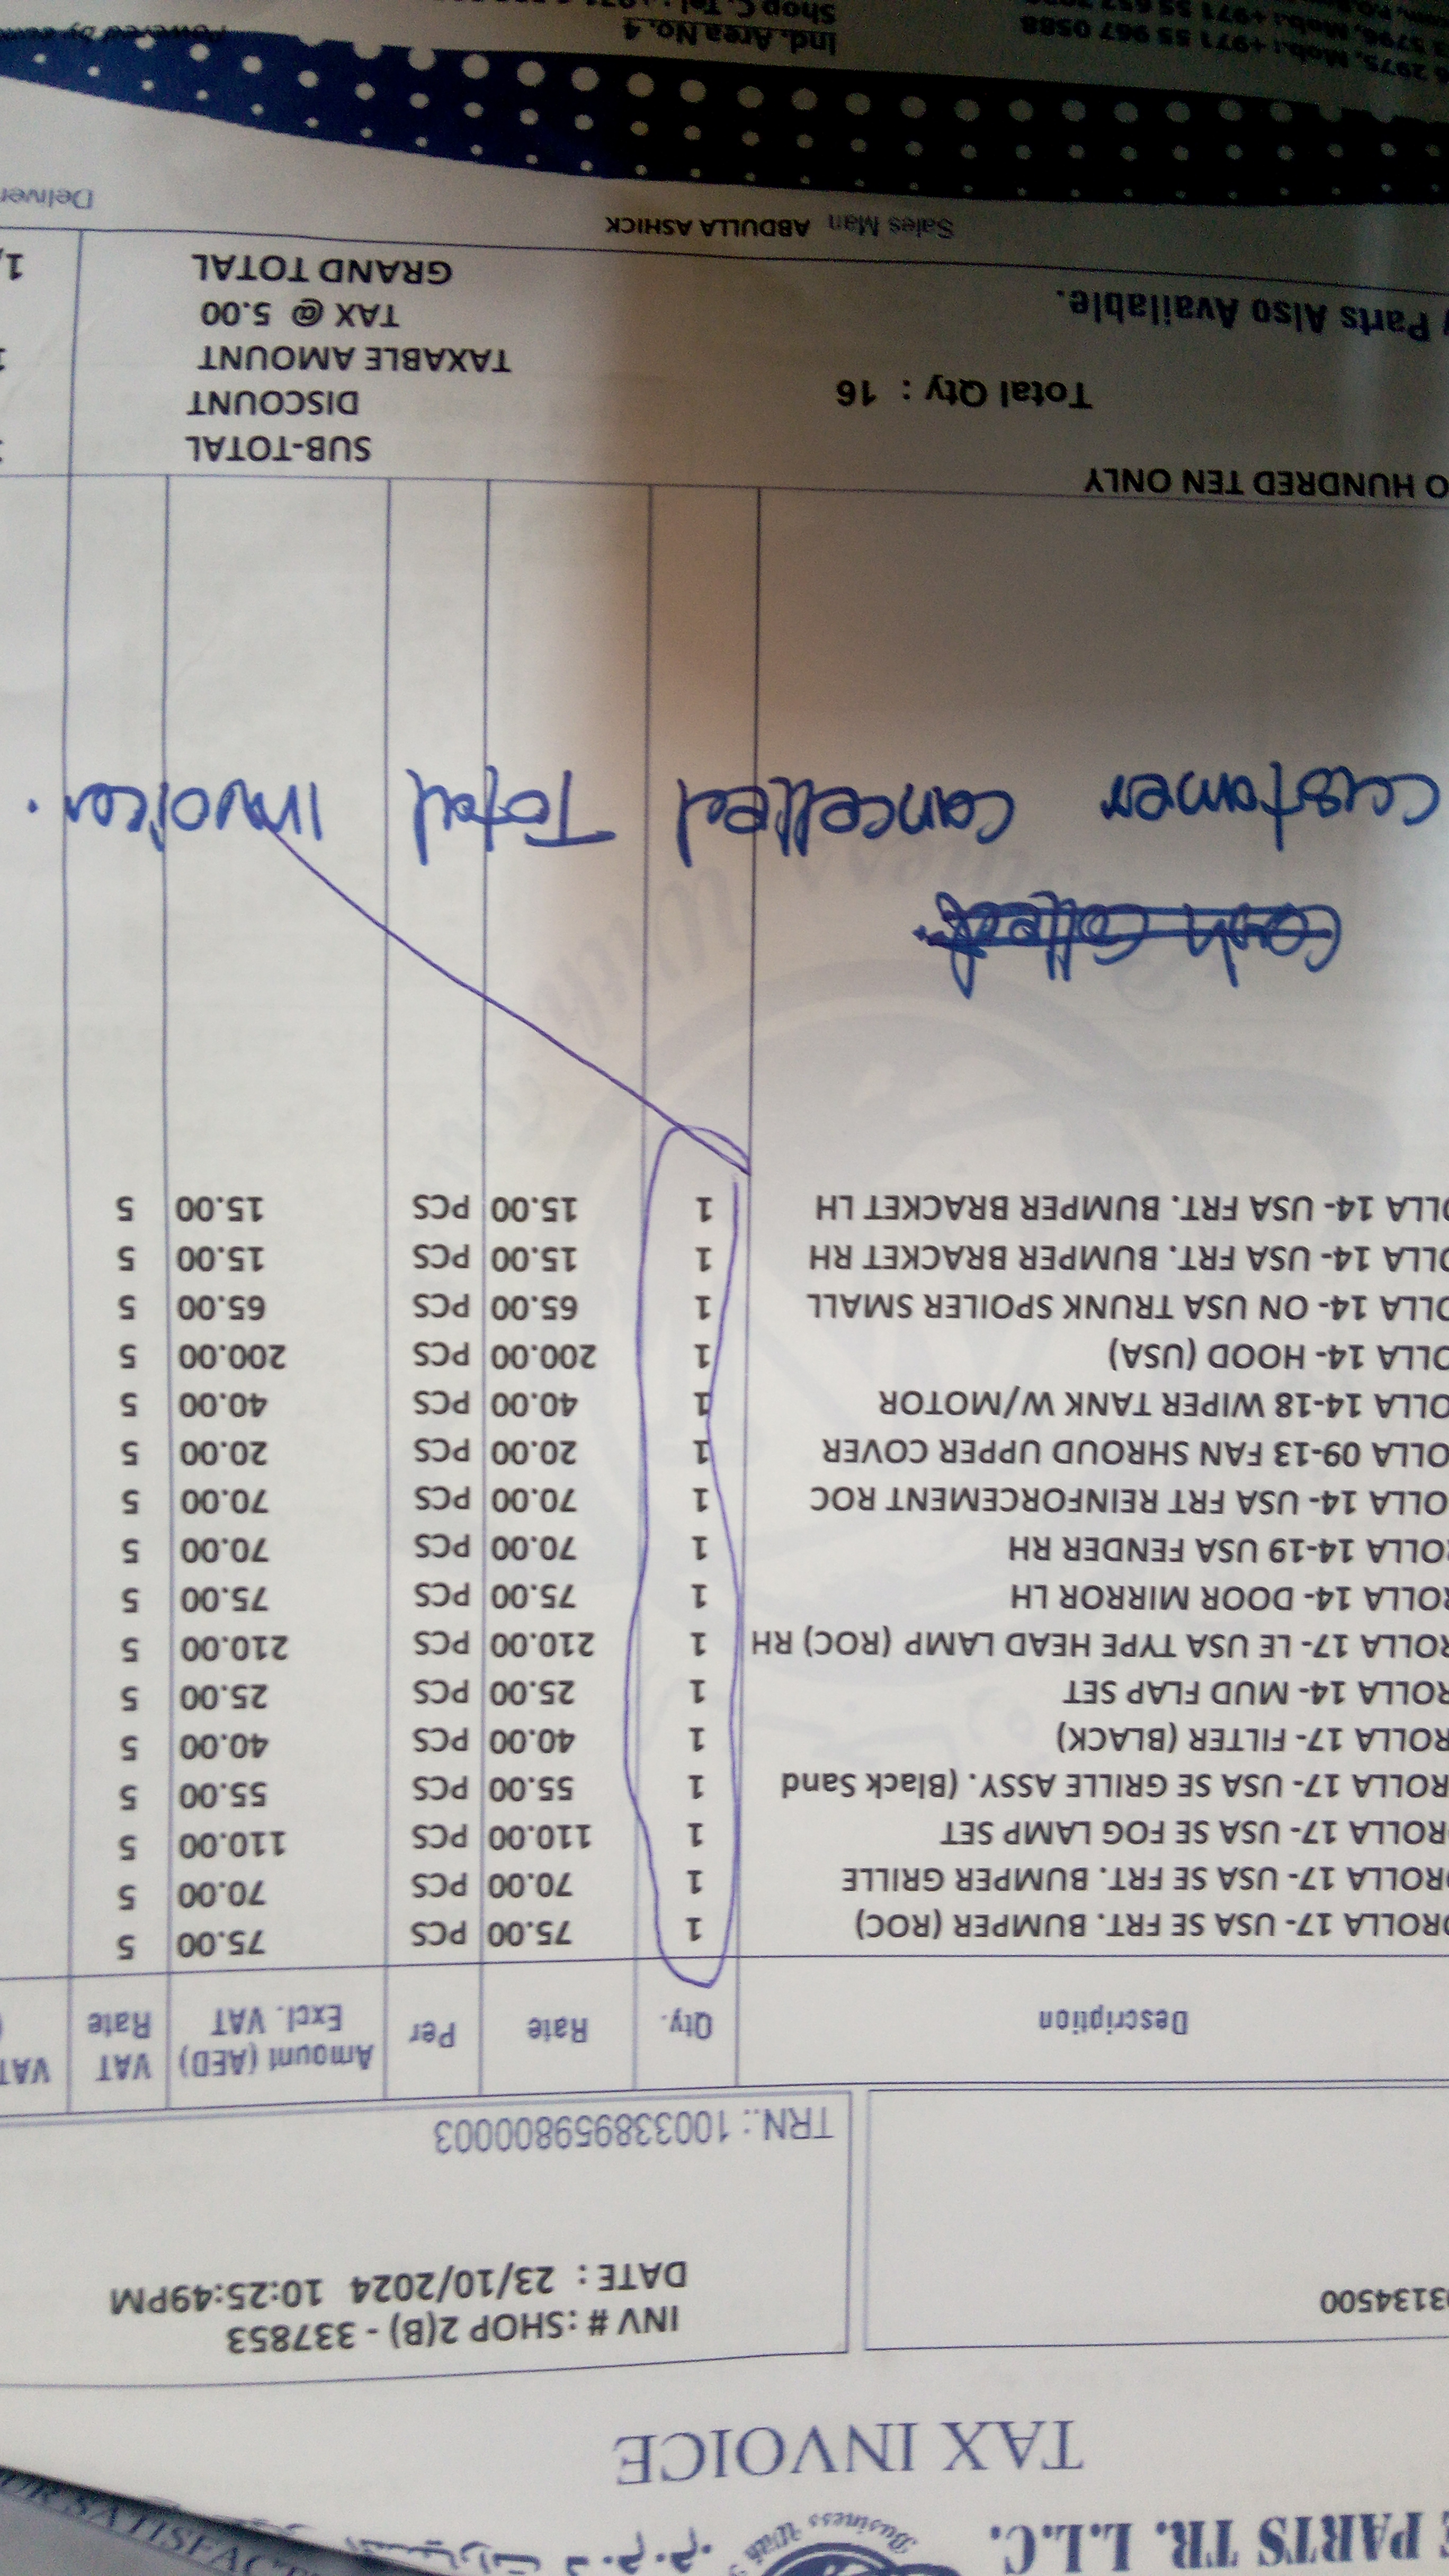 E PARTS TR. L.L.C.
Business With
OR SATISFAC
TAX INVOICE
3134500
INV # : SHOP 2(B) - 337853
DATE : 23/10/2024 10:25:49PM
TRN.: 100338959800003
Description Qty. Rate Per Amount (AED) Excl. VAT VAT Rate VAT
OROLLA 17- USA SE FRT. BUMPER (ROC) 1 75.00 PCS 75.00 5
OROLLA 17- USA SE FRT. BUMPER GRILLE 1 70.00 PCS 70.00 5
ROLLA 17- USA SE FOG LAMP SET 1 110.00 PCS 110.00 5
ROLLA 17- USA SE GRILLE ASSY. (Black Sand 1 55.00 PCS 55.00 5
ROLLA 17- FILTER (BLACK) 1 40.00 PCS 40.00 5
ROLLA 14- MUD FLAP SET 1 25.00 PCS 25.00 5
ROLLA 17- LE USA TYPE HEAD LAMP (ROC) RH 1 210.00 PCS 210.00 5
ROLLA 14- DOOR MIRROR LH 1 75.00 PCS 75.00 5
ROLLA 14-19 USA FENDER RH 1 70.00 PCS 70.00 5
OLLA 14- USA FRT REINFORCEMENT ROC 1 70.00 PCS 70.00 5
OLLA 09-13 FAN SHROUD UPPER COVER 1 20.00 PCS 20.00 5
OLLA 14-18 WIPER TANK W/MOTOR 1 40.00 PCS 40.00 5
OLLA 14- HOOD (USA) 1 200.00 PCS 200.00 5
OLLA 14- ON USA TRUNK SPOILER SMALL 1 65.00 PCS 65.00 5
OLLA 14- USA FRT. BUMPER BRACKET RH 1 15.00 PCS 15.00 5
OLLA 14- USA FRT. BUMPER BRACKET LH 1 15.00 PCS 15.00 5
customer cancelled Total Invoices.
O HUNDRED TEN ONLY
SUB-TOTAL
DISCOUNT
Total Qty : 16
TAXABLE AMOUNT
Parts Also Available.
TAX @ 5.00
GRAND TOTAL 1,
Sales Man ABDULLA ASHICK
Deliver
Ind. Area No. 4
2975, Mob.: +971 55 967 0588
Shop C, Tel.: +971
Powered by